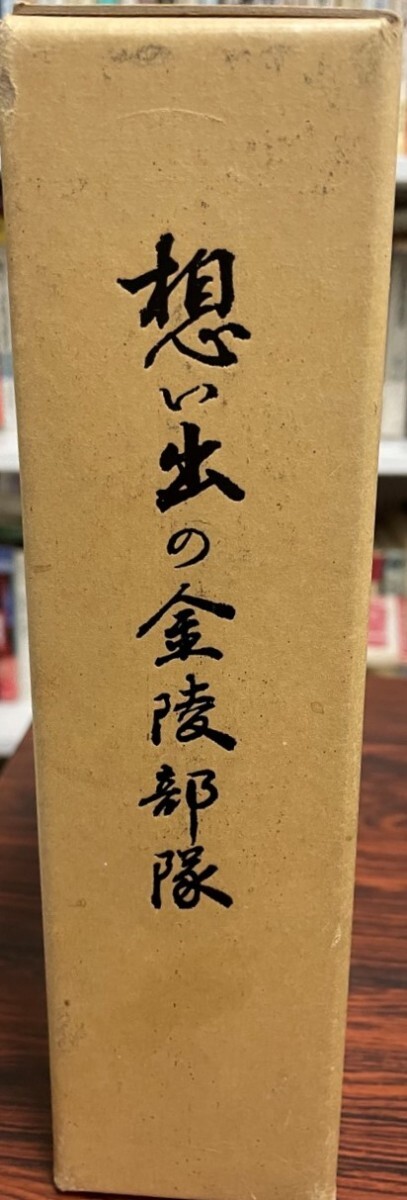 想い出の金陵部隊